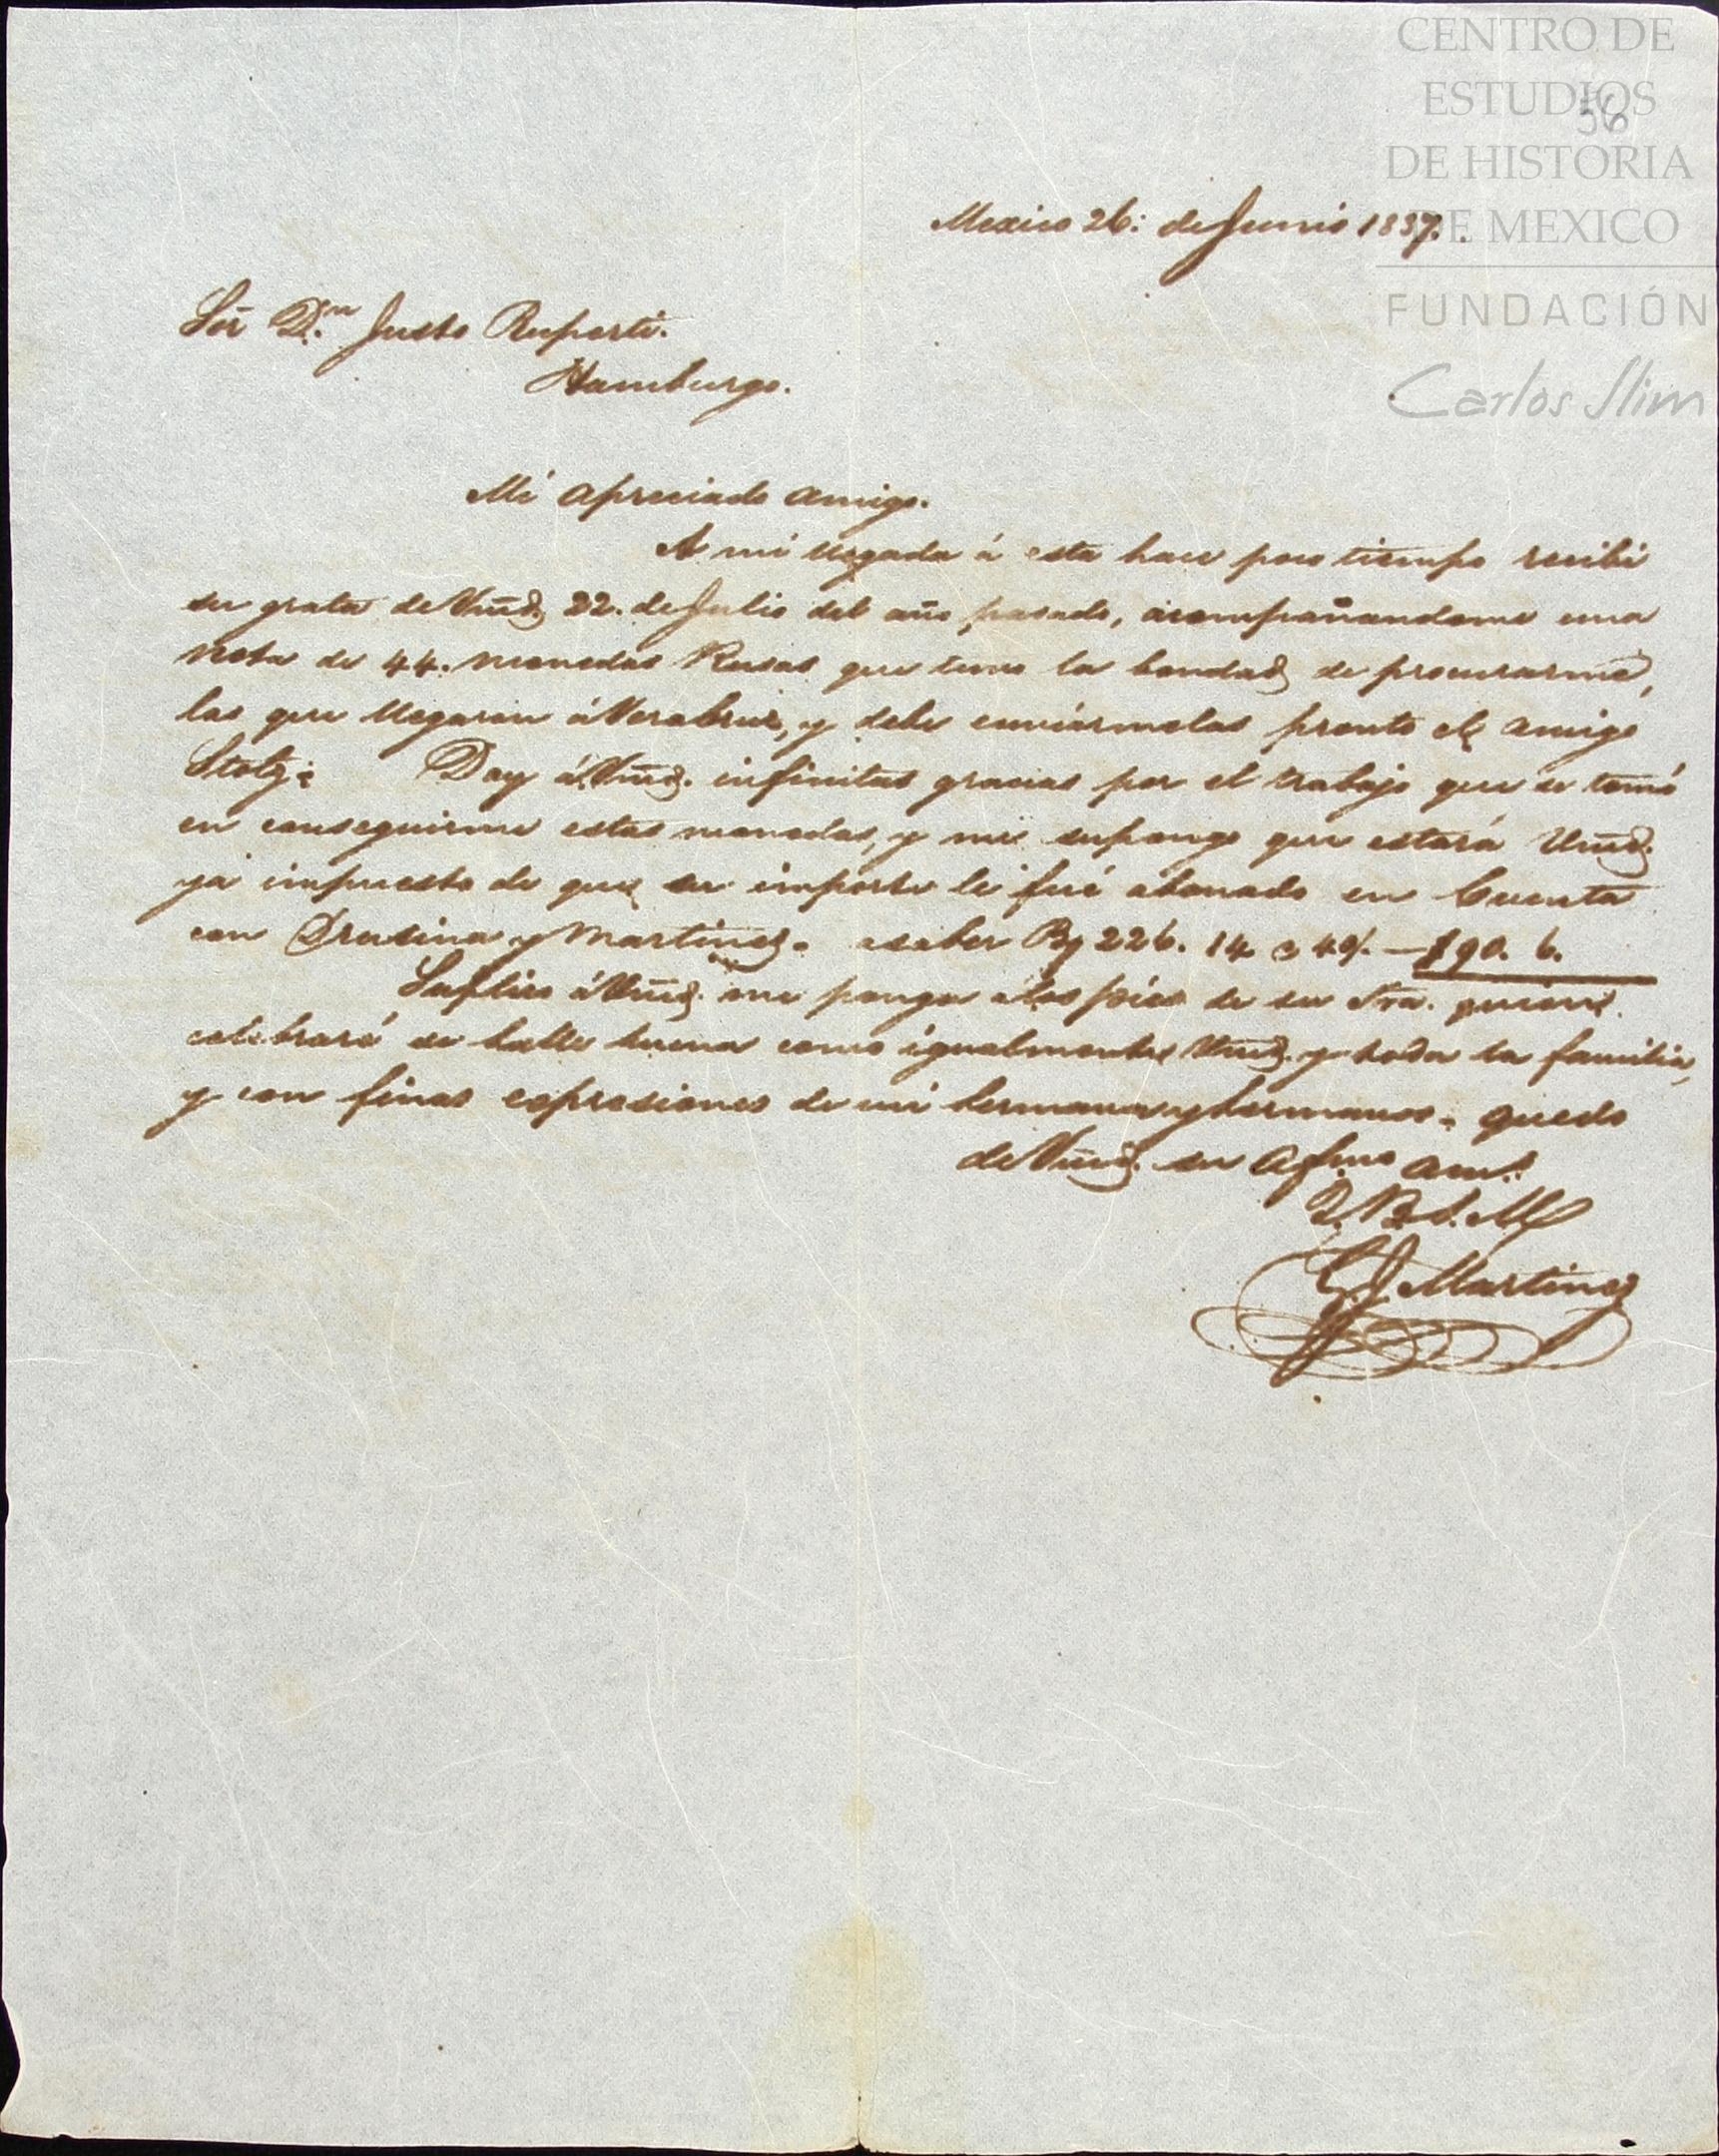 CENTRO DE
ESTUDIOS
56
DE HISTORIA
DE MEXICO
FUNDACIÓN
Carlos Slim
Mexico 26: de Junio 1837.
Sor Dn. Justo Ruperti.
Hamburgo.
Mi apreciado amigo.
A mi llegada á esta hace poco tiempo recibi
su grata de Vmd. 22. de Julio del año pasado, acompañandome una
Nota de 44. monedas Rusas que tuvo la bondad de procurarme,
las que llegaron á Verabruz, y debe enviármelas pronto el amigo
Stolz; Doy á Vmd. infinitas gracias por el trabajo que se tomó
en conseguirme estas monedas, y me supongo que estará Vmd.
ya impuesto de que su importe le fué abonado en Cuenta
con Drusina y Martinez. a saber 226. 14 a 40/. — $90. 6.
Suplico á Vmd. me ponga a los pies de su Sra. quien
celebraré se halle buena como igualmente Vmd. y toda la familia,
y con finas expresiones de mi hermana y hermanos. quedo
de Vmd. su afmo am.
Q. B. S. M
Martinez